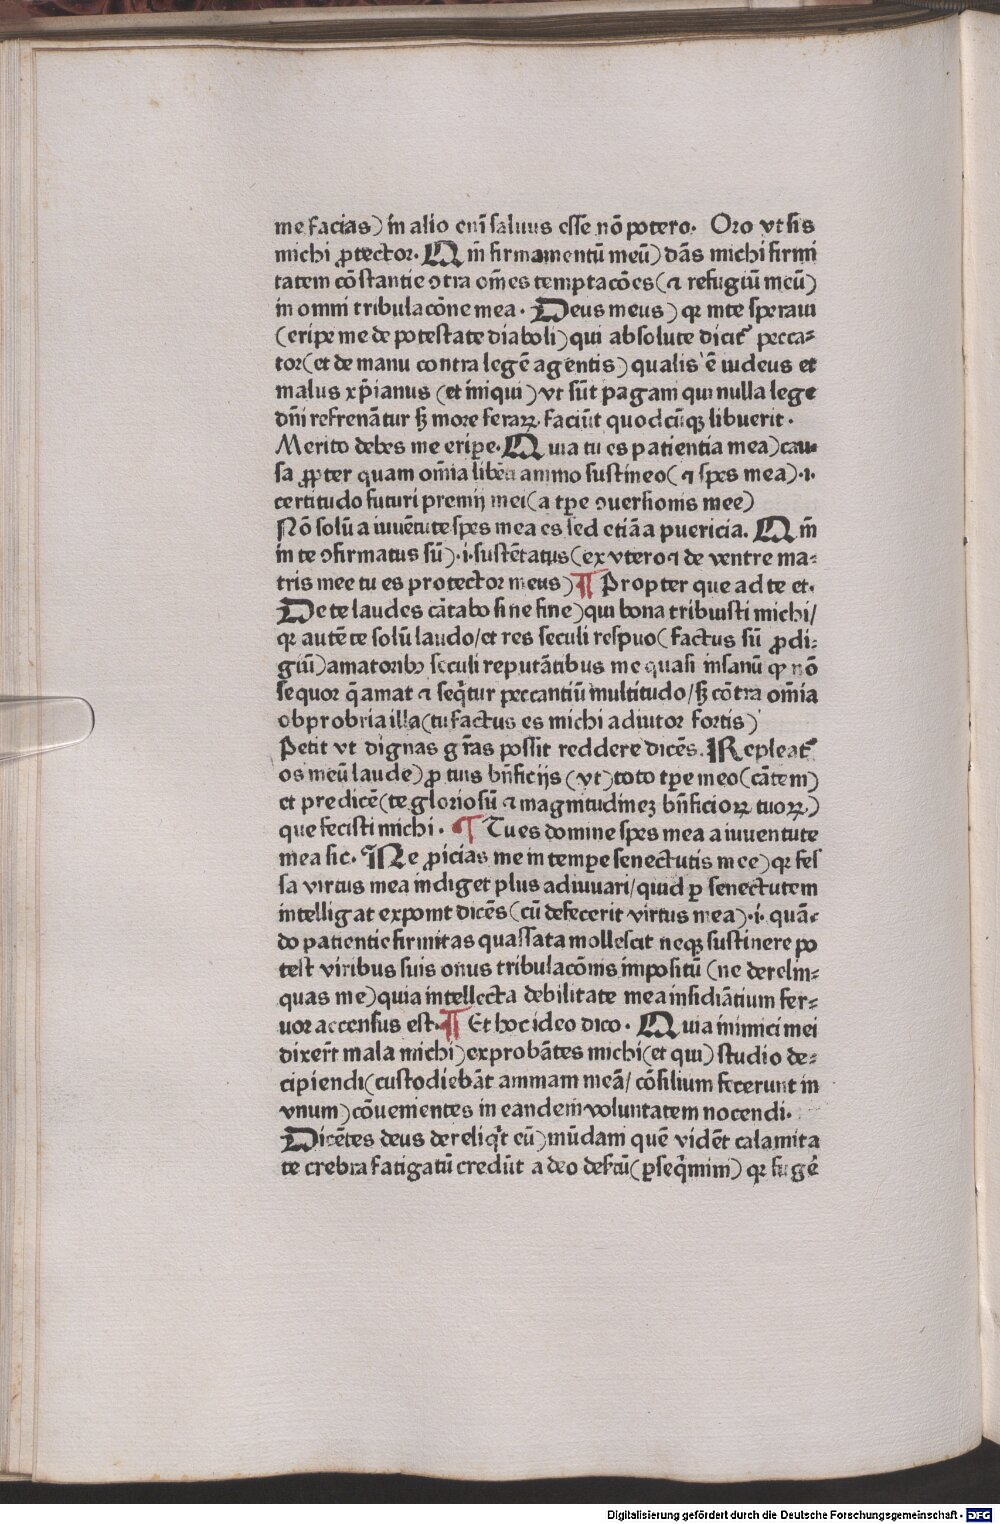 me facias) in alio eni̅ saluus esse no̅ potero. Oro vt sis
michi ꝓtector. Qm̅ firmamentu̅ meu̅) da̅s michi firmi
tatem co̅stantie ꝯtra om̅es temptaco̅es (⁊ refugiu̅ meu̅)
in omni tribulaco̅ne mea. Deus meus) qꝛ inte speraui
(eripe me de potestate diaboli) qui absolute dicit᷑ pecca⸗
tor (et de manu contra lege̅ agentis) qualis e̅ iudeus et
malus xp̅ianus (et iniqui) vt su̅t pagani qui nulla lege
dn̅i refrena̅tur sꝫ more feraꝝ faciu̅t quodcu̅qꝫ libuerit.
Merito debes me eripe. Quia tu es patientia mea) cau⸗
sa ꝓpter quam om̅ia libe̅ti animo sustineo (⁊ spes mea) .i.
certitudo futuri premij mei (a tp̅e ꝯuersionis mee)
No̅ solu̅ a iuue̅tute spes mea es sed etia̅ a puericia. Qm̅
in te ꝯfirmatus su̅) .i. suste̅tatus (ex vtero ⁊ de ventre ma⸗
tris mee tu es protector meus) ¶ Propter que ad te et.
De te laudes ca̅tabo sine fine) qui bona tribuisti michi/
qꝛ aute̅ te solu̅ laudo/et res seculi respuo (factus su̅ ꝓdi⸗
giu̅) amatoribꝫ seculi reputa̅tibus me quasi insanu̅ qꝛ no̅
sequor q̅ amat ⁊ seq̅tur peccantiu̅ multitudo/sꝫ co̅tra om̅ia
obprobria illa (tu factus es michi adiutor fortis)
Petit vt dignas gr̅as possit reddere dice̅s. Repleat᷑
os meu̅ laude) ꝓ tuis bn̅ficijs (vt) toto tp̅e meo (ca̅tem)
et predice̅ (te gloriosu̅ ⁊ magnitudineꝫ bn̅ficioꝝ tuoꝝ)
que fecisti michi. ¶ Tu es domine spes mea a iuuentute
mea sic. Ne ꝓicias me in tempe senectutis mee) qꝛ fes
sa virtus mea indiget plus adiuuari/quid ꝑ senectutem
intelligat exponit dice̅s (cu̅ defecerit virtus mea) .i. qua̅⸗
do patientie firmitas quassata mollescit neqꝫ sustinere po
test viribus suis onus tribulaco̅nis impositu̅ (ne derelin⸗
quas me) quia intellecta debilitate mea insidia̅tium fer⸗
uor accensus est. ¶ Et hoc ideo dico. Quia inimici mei
dixer̅t mala michi) exproba̅tes michi (et qui) studio de⸗
cipiendi (custodieba̅t animam mea̅/ co̅silium fecerunt in
vnum) co̅uenientes in eandem voluntatem nocendi.
Dice̅tes deus dereliq̅t eu̅) mu̅dam que̅ vide̅t calamita
te crebra fatigatu̅ credu̅t a deo defcu̅ (ꝑseq̅mini) qꝛ fuge̅
Digitalisierung gefördert durch die Deutsche Forschungsgemeinschaft - DFG